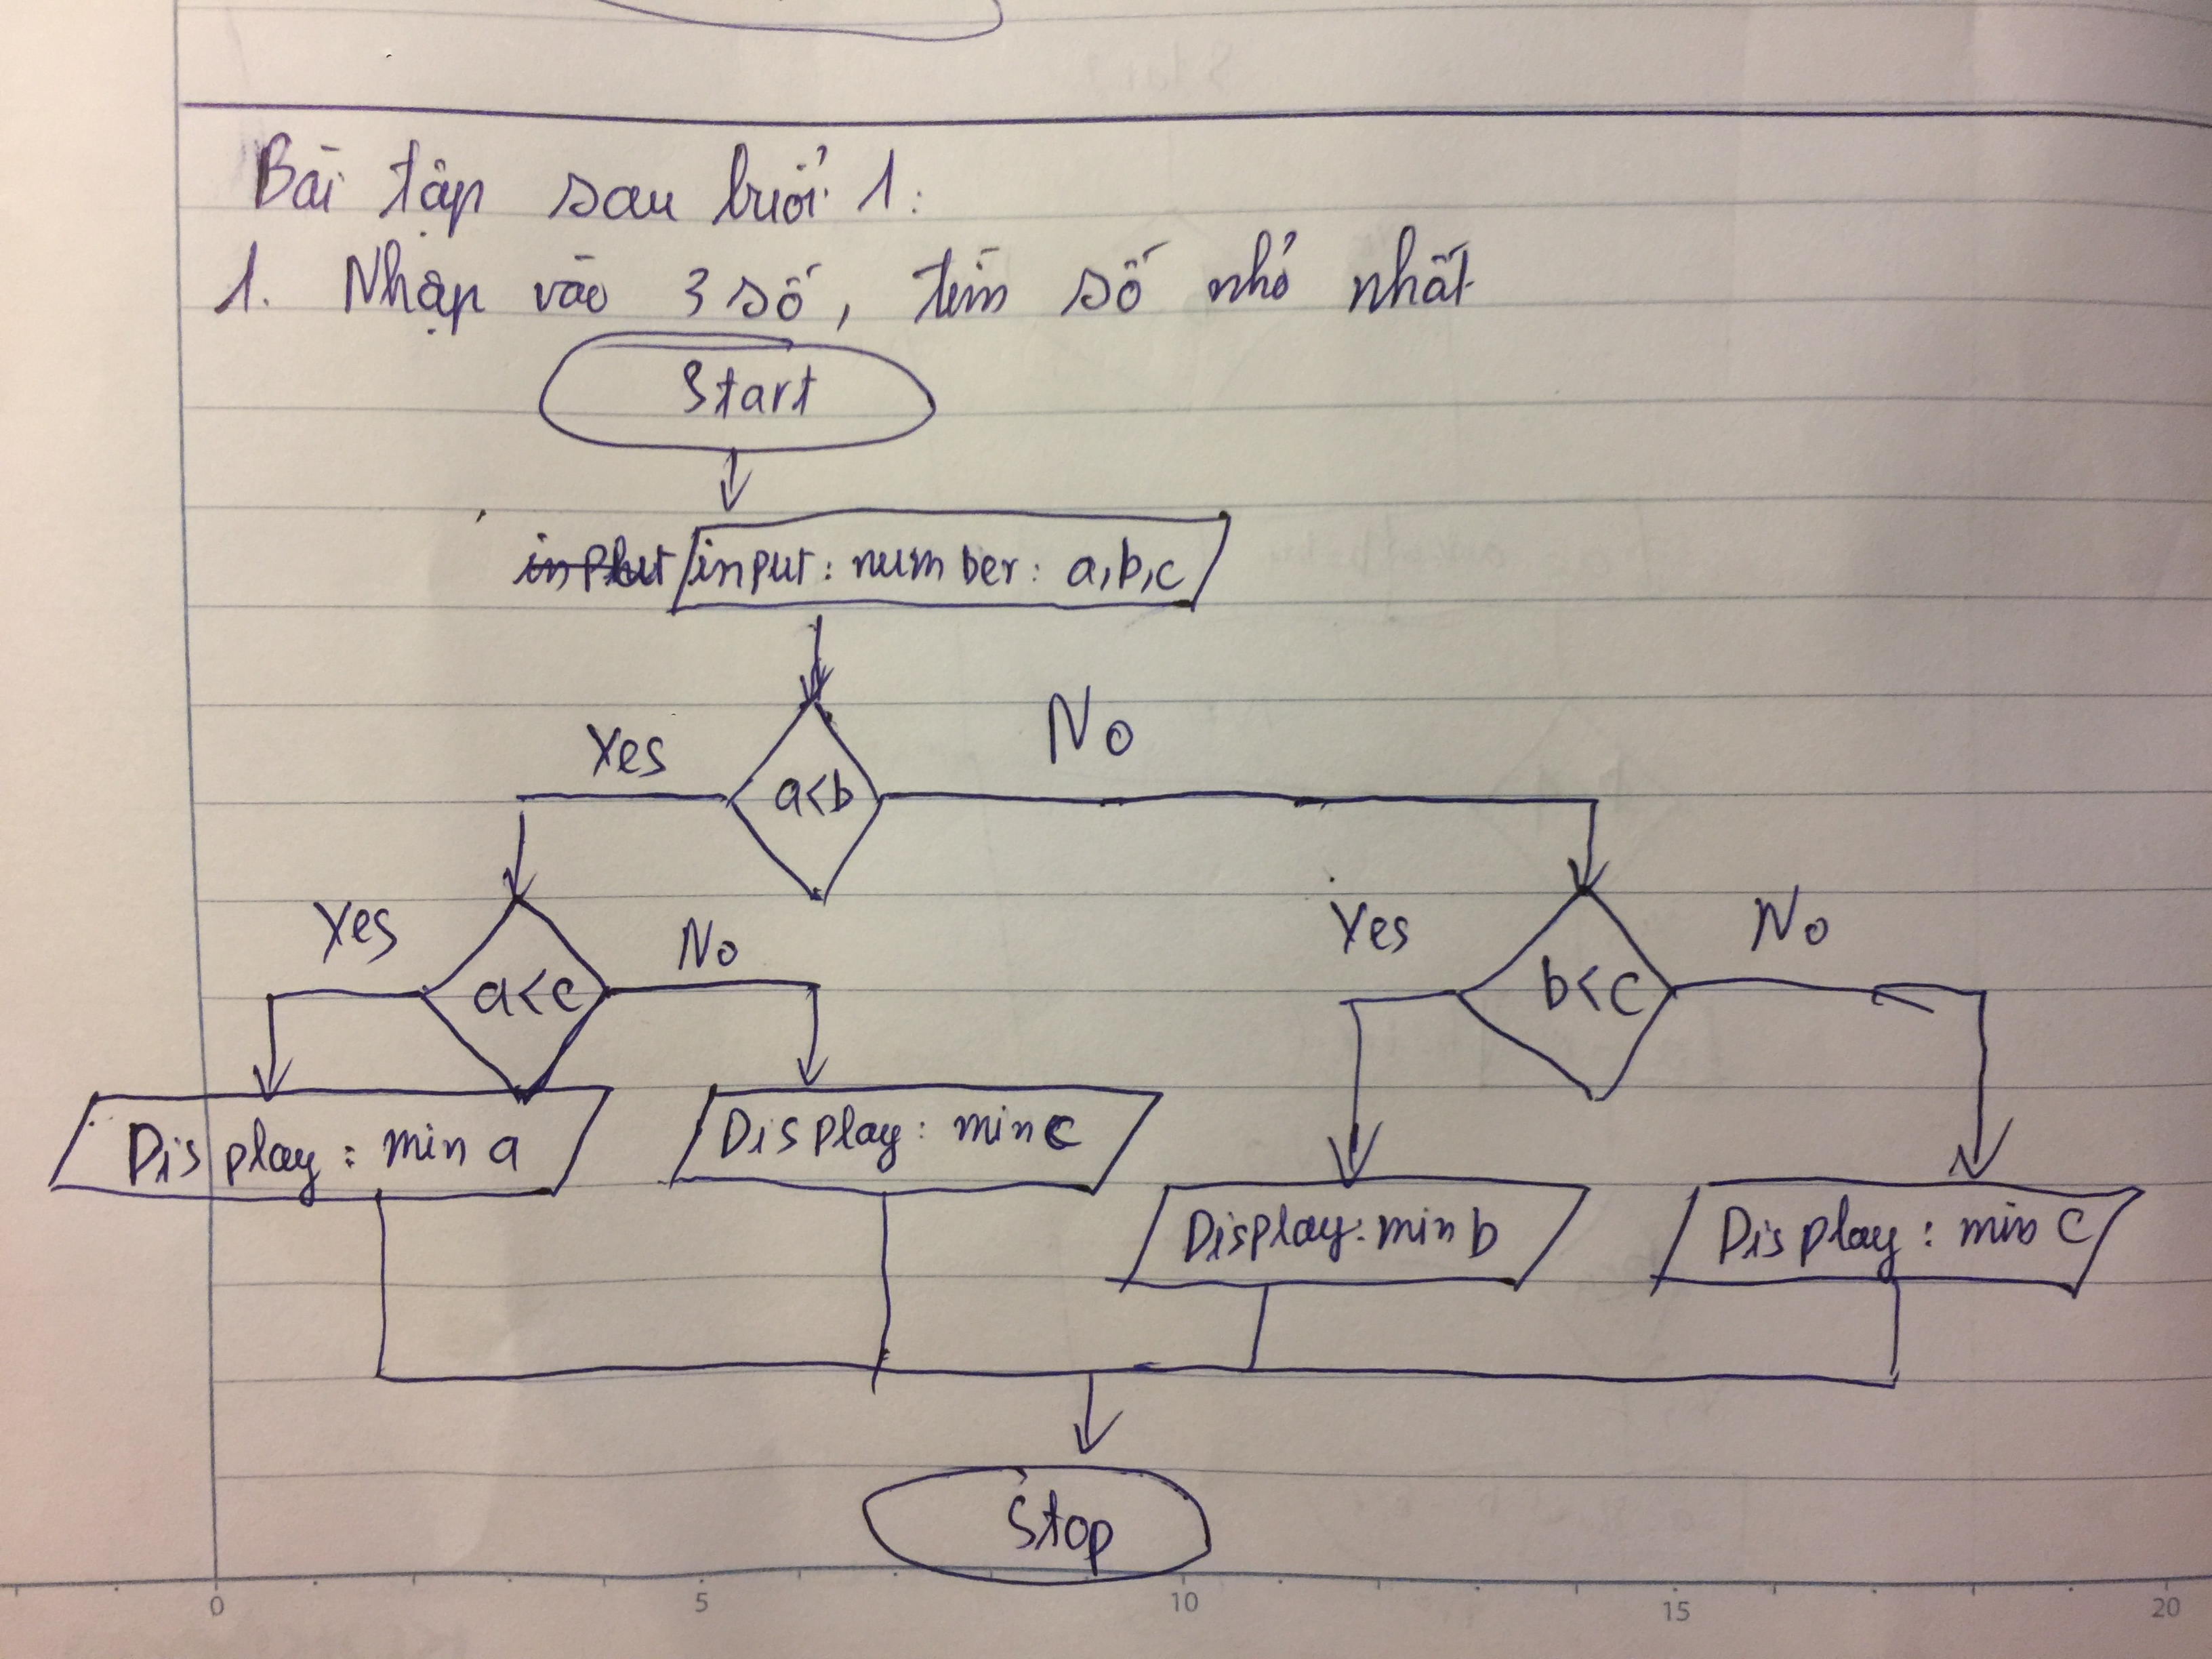 Bài tập sau buổi 1:
1. Nhập vào 3 số, tìm số nhỏ nhất
Start
input
input: number: a,b,c
a<b
Yes
No
a<c
Yes
No
b<c
Yes
No
Display: min a
Display: min c
Display: min b
Display: min c
Stop
0 5 10 15 20